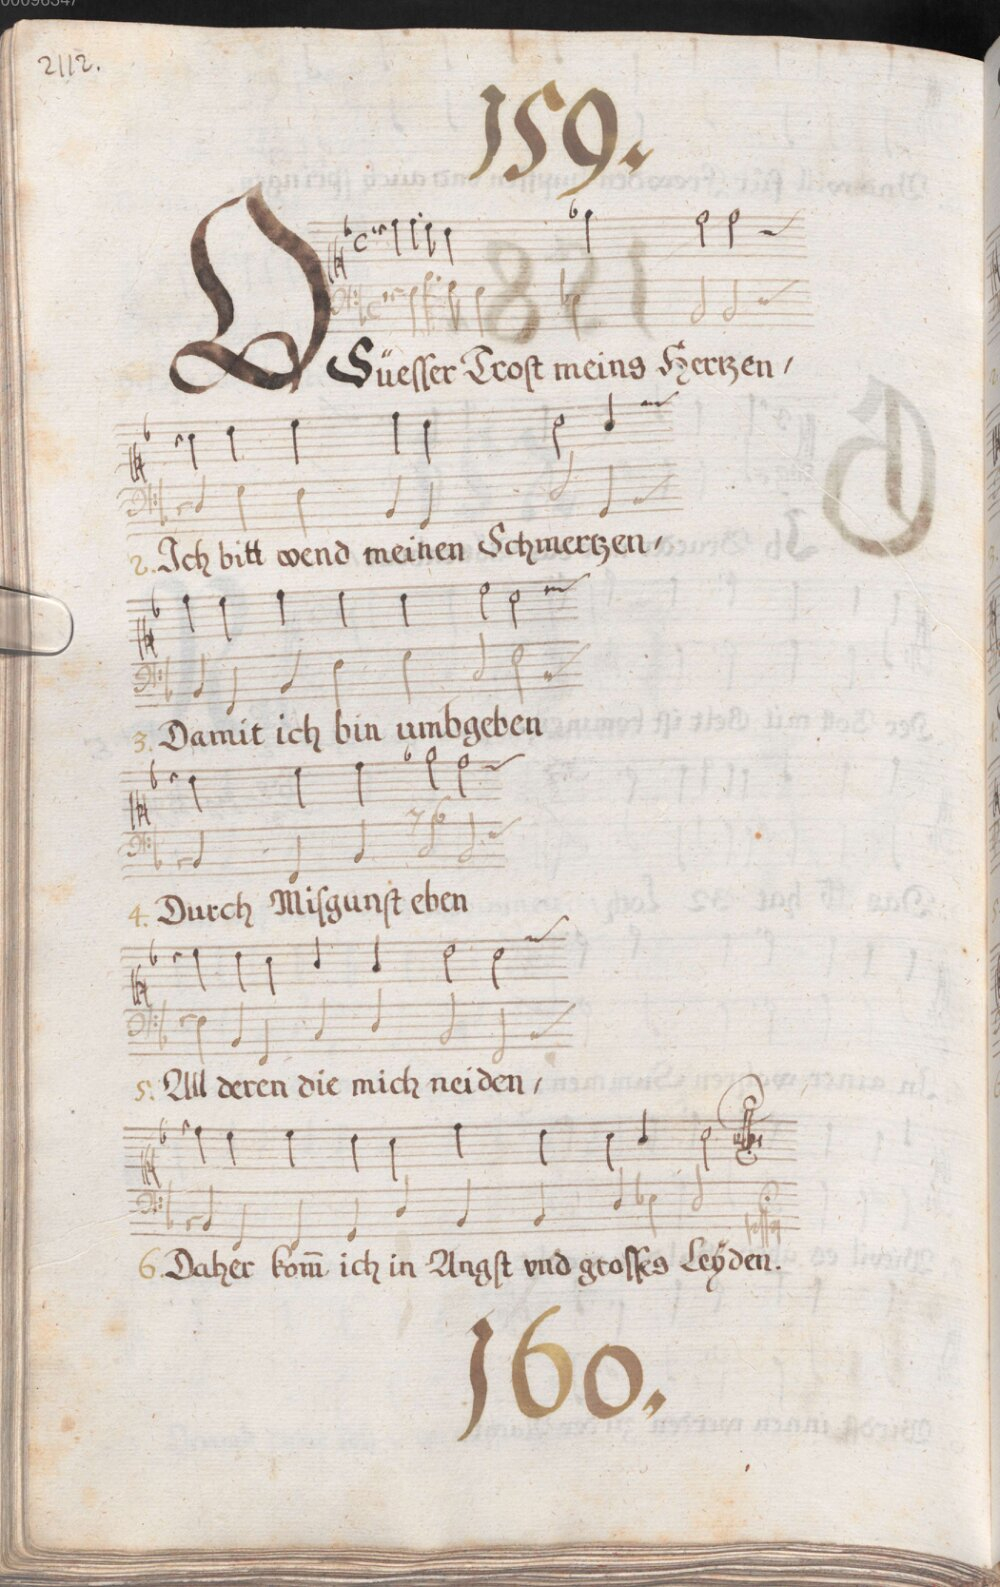 2112.
159.
O Süesser Trost meins Hertzen /
2. Ich bitt wend meinen Schmertzen /
3. Damit ich bin umbgeben
7 6
4. Durch Misgunst eben
5. All deren die mich neiden /
6. Daher kom̄ ich in Angst vnd grosses Leÿden.
160.